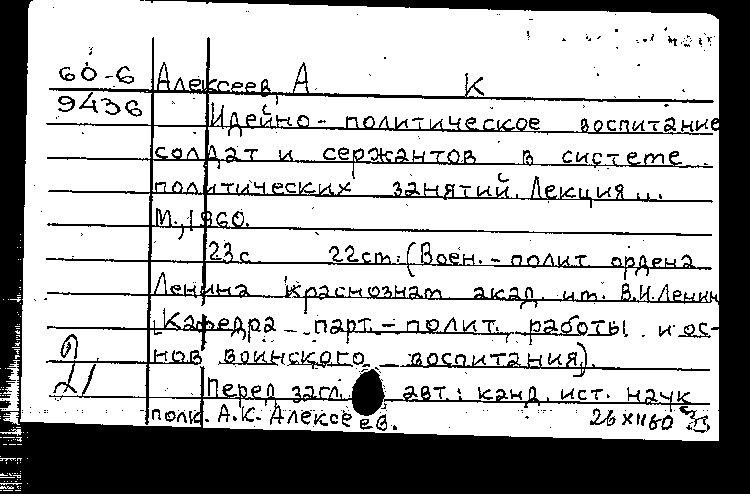 60-6 Алексеев, А К
9436 Идейно-политическое воспитание
солдат и сержантов в системе
политических занятий. Лекция...
М., 1960.
23с. 22см. (Воен.-полит. ордена
Ленина Краснознам. акад. им. В.И.Ленин
Кафедра парт.-полит. работы и ос-
нов воинского воспитания).
Перед загл. авт.: канд. ист. наук
полк. А.К. Алексеев.
21
26 XII 60